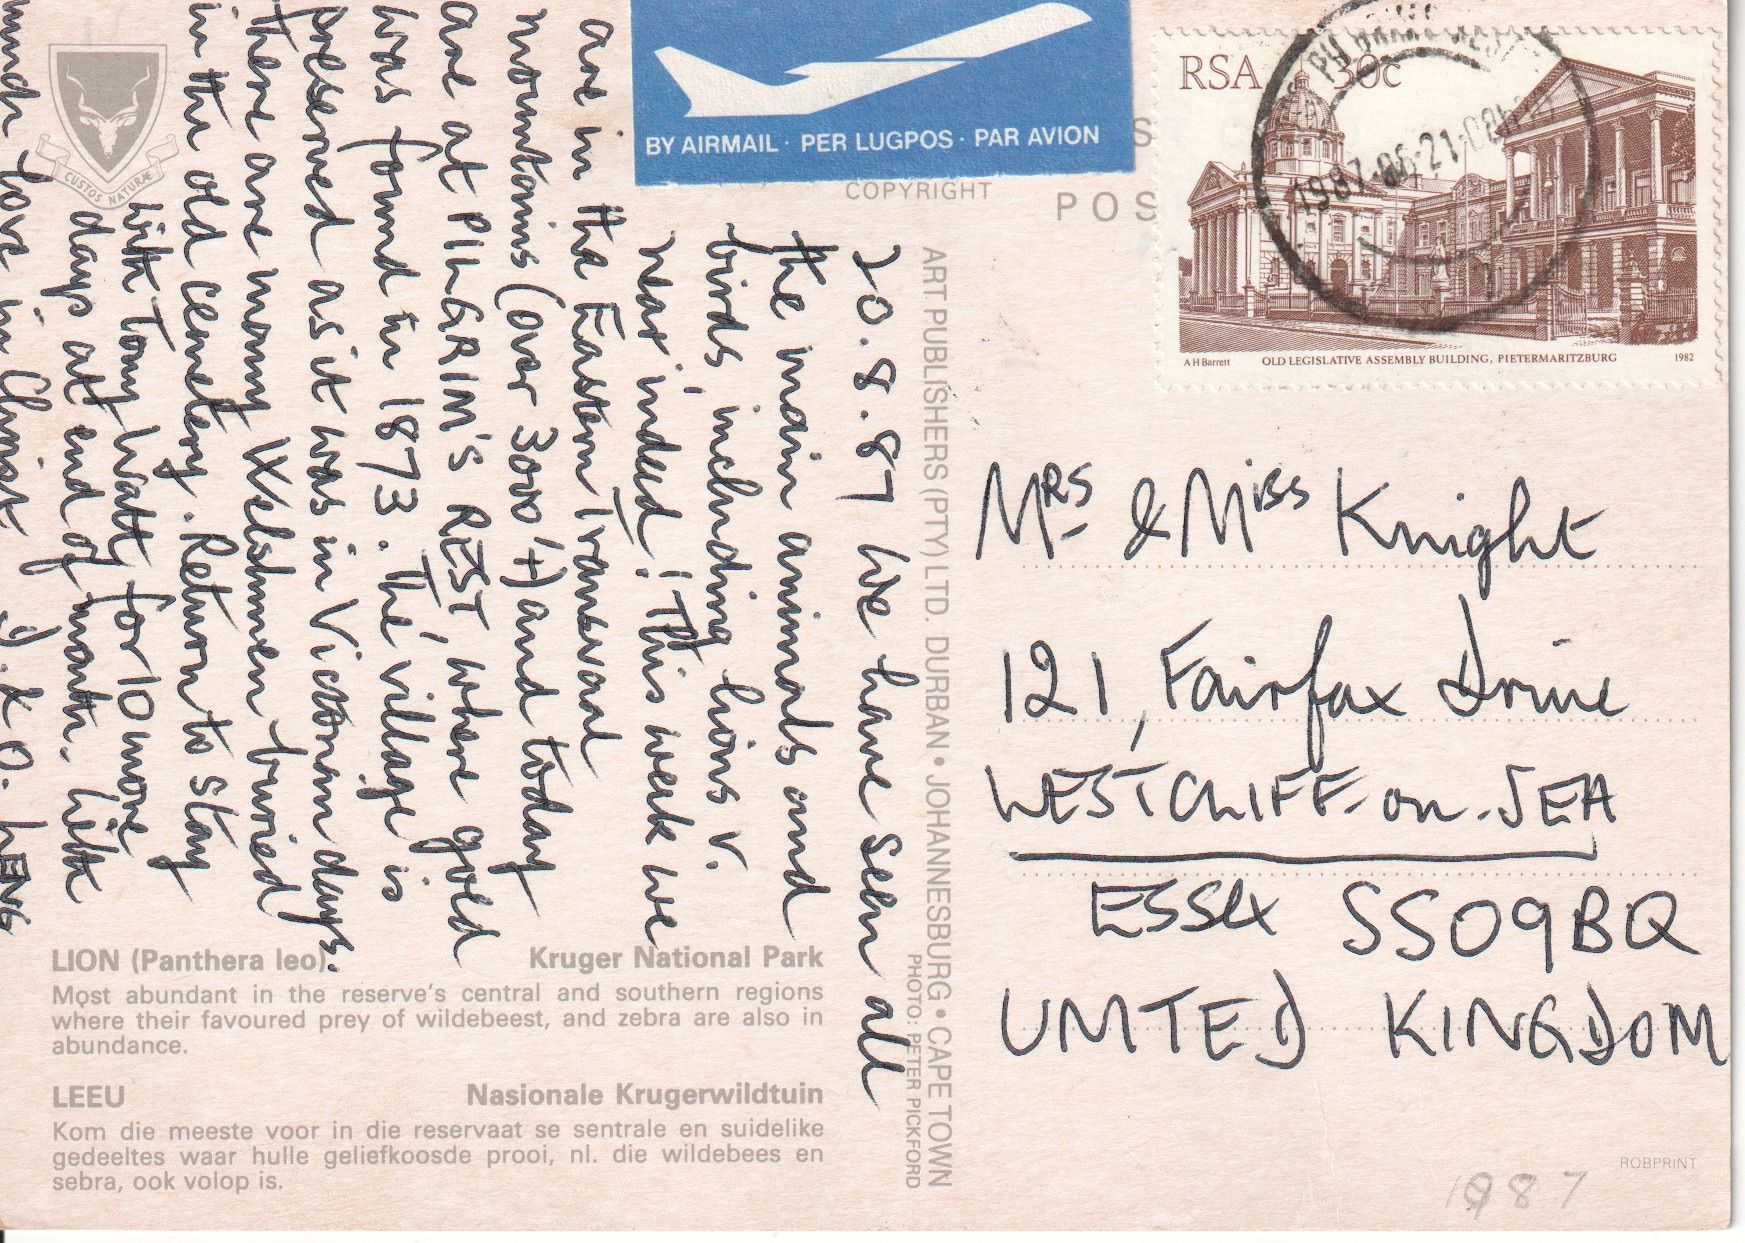 BY AIRMAIL · PER LUGPOS · PAR AVION
COPYRIGHT
POS
RSA 30c
1987-08-21
A H Barrett OLD LEGISLATIVE ASSEMBLY BUILDING, PIETERMARITZBURG 1982
CUSTOS NATURÆ
20.8.87 We have seen all
the main animals and
birds, including lions v.
near indeed! This week we
are in the Eastern Transvaal
mountains (over 3000'+) and today
are at PILGRIM'S REST, where gold
was found in 1873. The village is
preserved as it was in Victorian days.
There are many Welshmen buried
in the old cemetery. Return to stay
with Tony Watt for 10 more
days at end of month. With
much love in Christ
ART PUBLISHERS (PTY) LTD. DURBAN • JOHANNESBURG • CAPE TOWN
PHOTO: PETER PICKFORD
Mrs & Miss Knight
121, Fairfax Drive
WESTCLIFF-on-SEA
ESSEX SS09BQ
UNITED KINGDOM
LION (Panthera leo). Kruger National Park
Most abundant in the reserve's central and southern regions
where their favoured prey of wildebeest, and zebra are also in
abundance.
LEEU Nasionale Krugerwildtuin
Kom die meeste voor in die reservaat se sentrale en suidelike
gedeeltes waar hulle geliefkoosde prooi, nl. die wildebees en
sebra, ook volop is.
ROBPRINT
1987